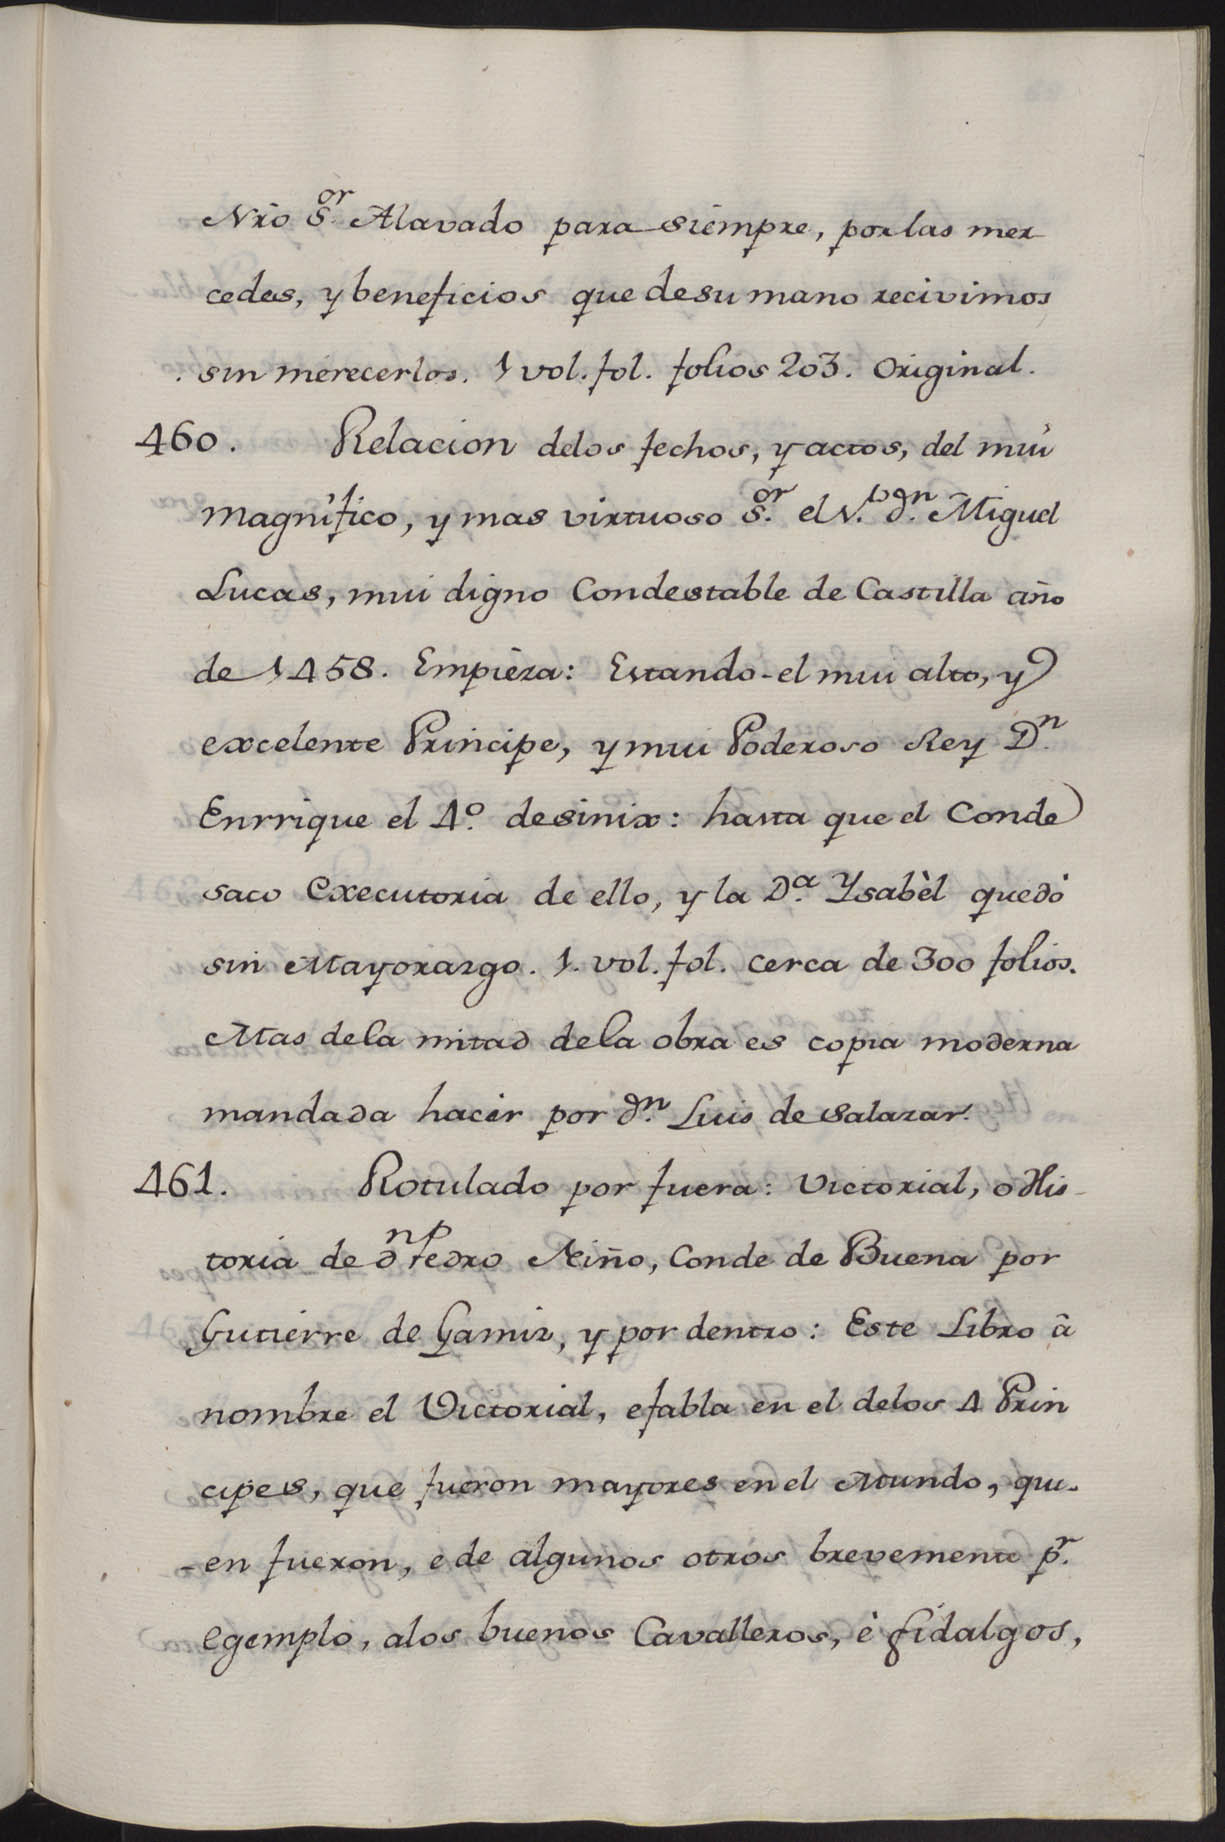 Nr̃o S.or Alavado para siempre, por las mer
cedes, y beneficios que de su mano recivimos
sin merecerlos. 1 vol. fol. folios 203. Original.
460. Relacion delos fechos, y actos, del mui
magnifico, y mas virtuoso S.or el V. D.n Miguel
Lucas, mui digno Condestable de Castilla año
de 1458. Empieza: Estando el mui alto, y
excelente Principe, y mui Poderoso Rey D.n
Enrrique el 4.o desinix: hasta que el Conde
saco Executoria de ello, y la D.a Ysabèl quedò
sin Mayorazgo. 1. vol. fol. cerca de 300 folios.
Mas dela mitad dela obra es copia moderna
mandada hacer por d.n Luis de Salazar.
461. Rotulado por fuera: Victorial, o His-
toria de d.n Pedro Niño, Conde de Buena por
Gutierre de Gamiz, y por dentro: Este Libro â
nombre el Victorial, e fabla en el delos 4 Prin
cipes, que fueron mayores en el Mundo, qui-
-en fueron, e de algunos otros brevemente p.r
egemplo, alos buenos Cavalleros, è fidalgos,